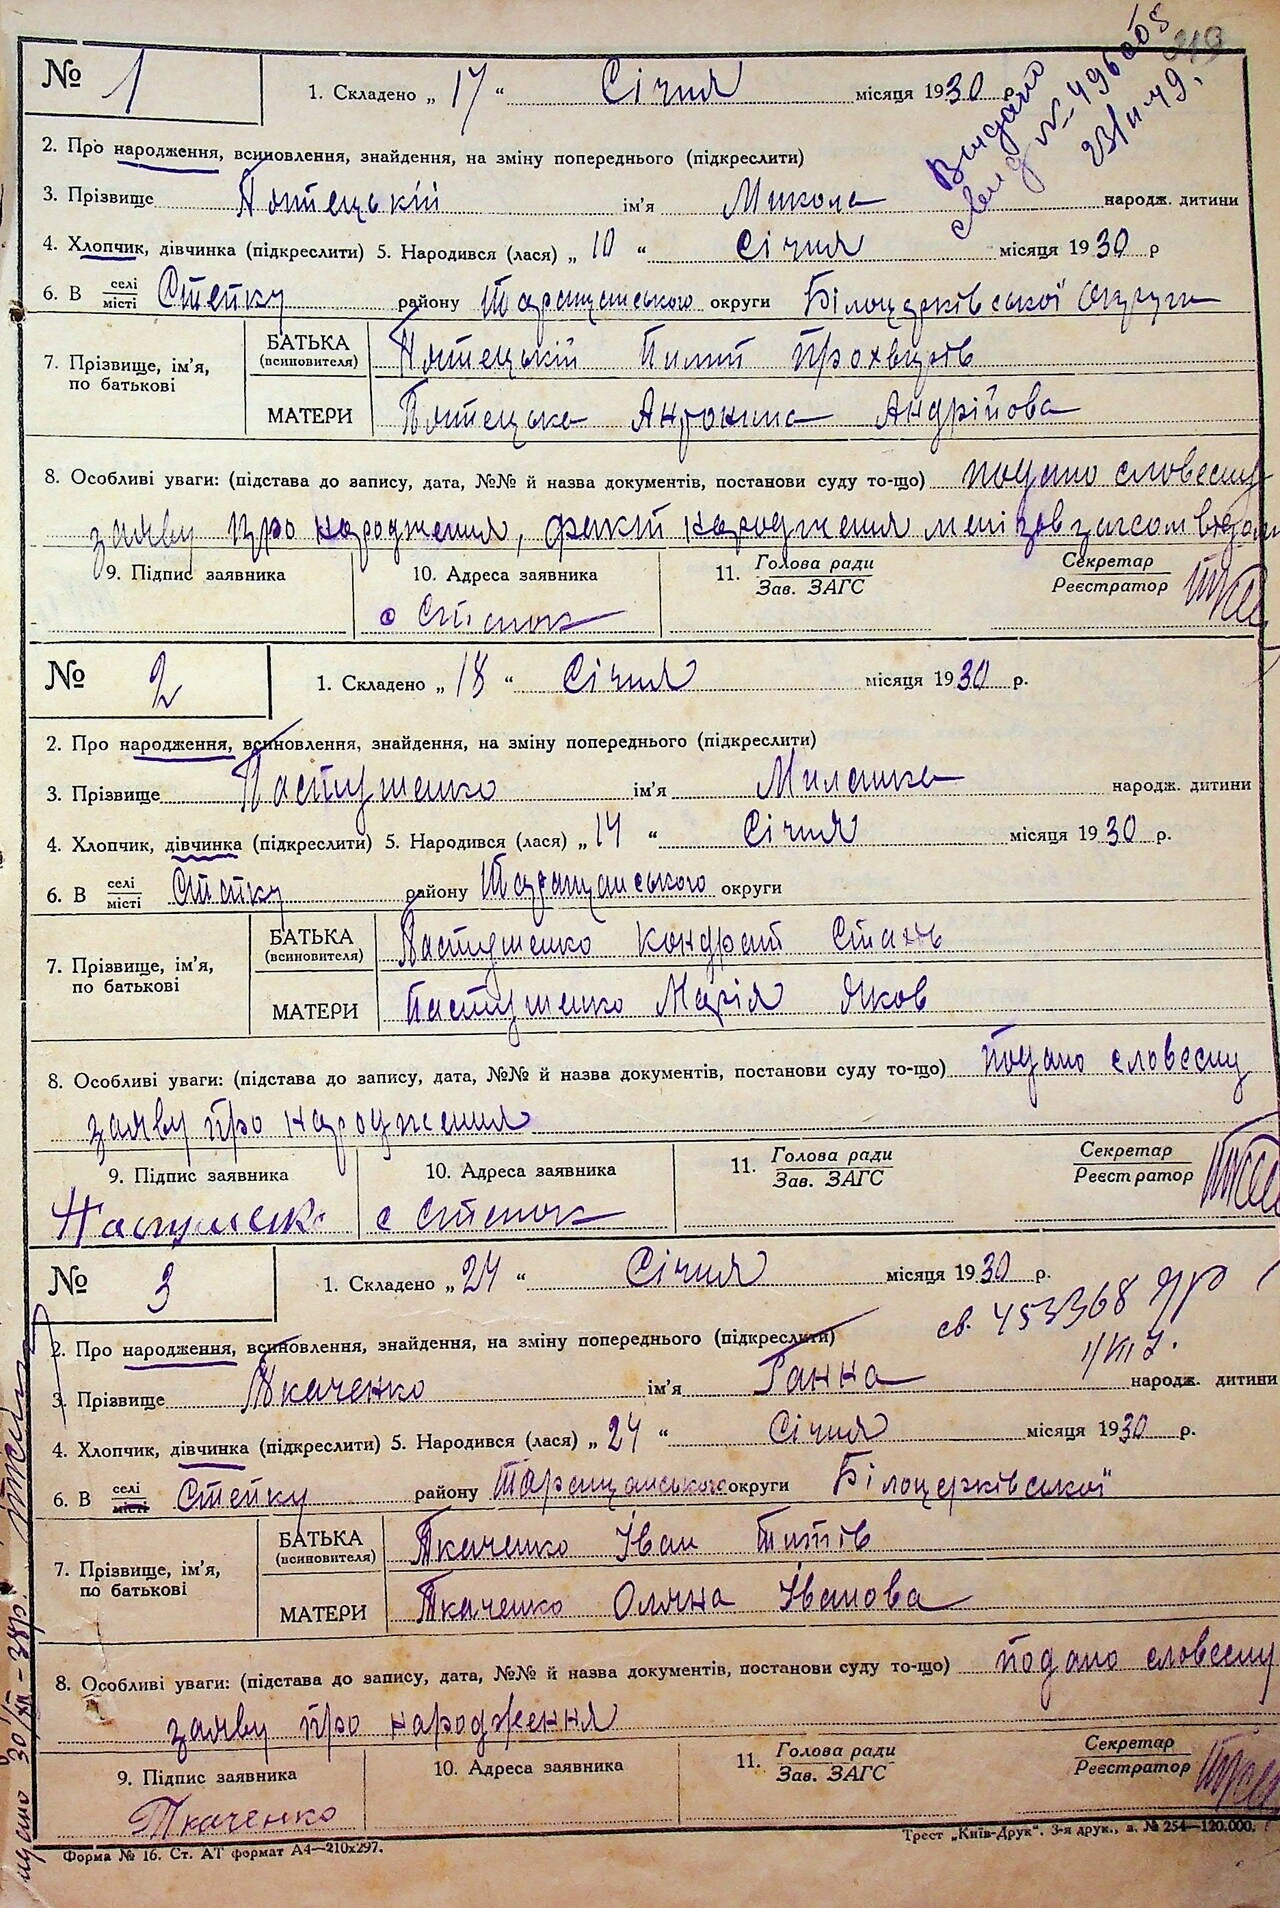 № 1
1. Складено „ 17 “ Січня місяця 1930 р.
Видано
№ 496005
23/II 49.
2. Про народження, всиновлення, знайдення, на зміну попереднього (підкреслити)
3. Прізвище ім'я Микола народж. дитини
4. Хлопчик, дівчинка (підкреслити) 5. Народився (лася) „ 10 “ Січня місяця 1930 р
6. В селі/місті Степку району Таращанського округи Білоцерківської Округи
7. Прізвище, ім'я, по батькові
БАТЬКА (всиновителя)
МАТЕРИ Антонина Андрійова
8. Особливі уваги: (підстава до запису, дата, №№ й назва документів, постанови суду то-що) подано словесну
заяву про народження, факт народження мені
9. Підпис заявника
10. Адреса заявника
с Степок
11. Голова ради / Зав. ЗАГС
Секретар / Реєстратор
№ 2
1. Складено „ 18 “ Січня місяця 1930 р.
2. Про народження, всиновлення, знайдення, на зміну попереднього (підкреслити)
3. Прізвище Пастушенко ім'я Миланка народж. дитини
4. Хлопчик, дівчинка (підкреслити) 5. Народився (лася) „ 14 “ Січня місяця 1930 р.
6. В селі/місті Степку району Таращанського округи
7. Прізвище, ім'я, по батькові
БАТЬКА (всиновителя) Пастушенко Кондрат
МАТЕРИ Пастушенко Марія Яков
8. Особливі уваги: (підстава до запису, дата, №№ й назва документів, постанови суду то-що) подано словесну
заяву про народження
9. Підпис заявника
Пастушенко
10. Адреса заявника
с Степок
11. Голова ради / Зав. ЗАГС
Секретар / Реєстратор
№ 3
1. Складено „ 24 “ Січня місяця 1930 р.
св. 453368
2. Про народження, всиновлення, знайдення, на зміну попереднього (підкреслити)
3. Прізвище Ткаченко ім'я Ганна народж. дитини
4. Хлопчик, дівчинка (підкреслити) 5. Народився (лася) „ 24 “ Січня місяця 1930 р.
6. В селі/місті Степку району Таращанського округи Білоцерківської
7. Прізвище, ім'я, по батькові
БАТЬКА (всиновителя) Ткаченко Іван Титів
МАТЕРИ Ткаченко Оляна Іванова
8. Особливі уваги: (підстава до запису, дата, №№ й назва документів, постанови суду то-що) подано словесну
заяву про народження
9. Підпис заявника
Ткаченко
10. Адреса заявника
11. Голова ради / Зав. ЗАГС
Секретар / Реєстратор
Форма № 16. Ст. АТ формат А4—210х297.
Трест „Київ-Друк“. 3-я друк., з. № 254—120.000.